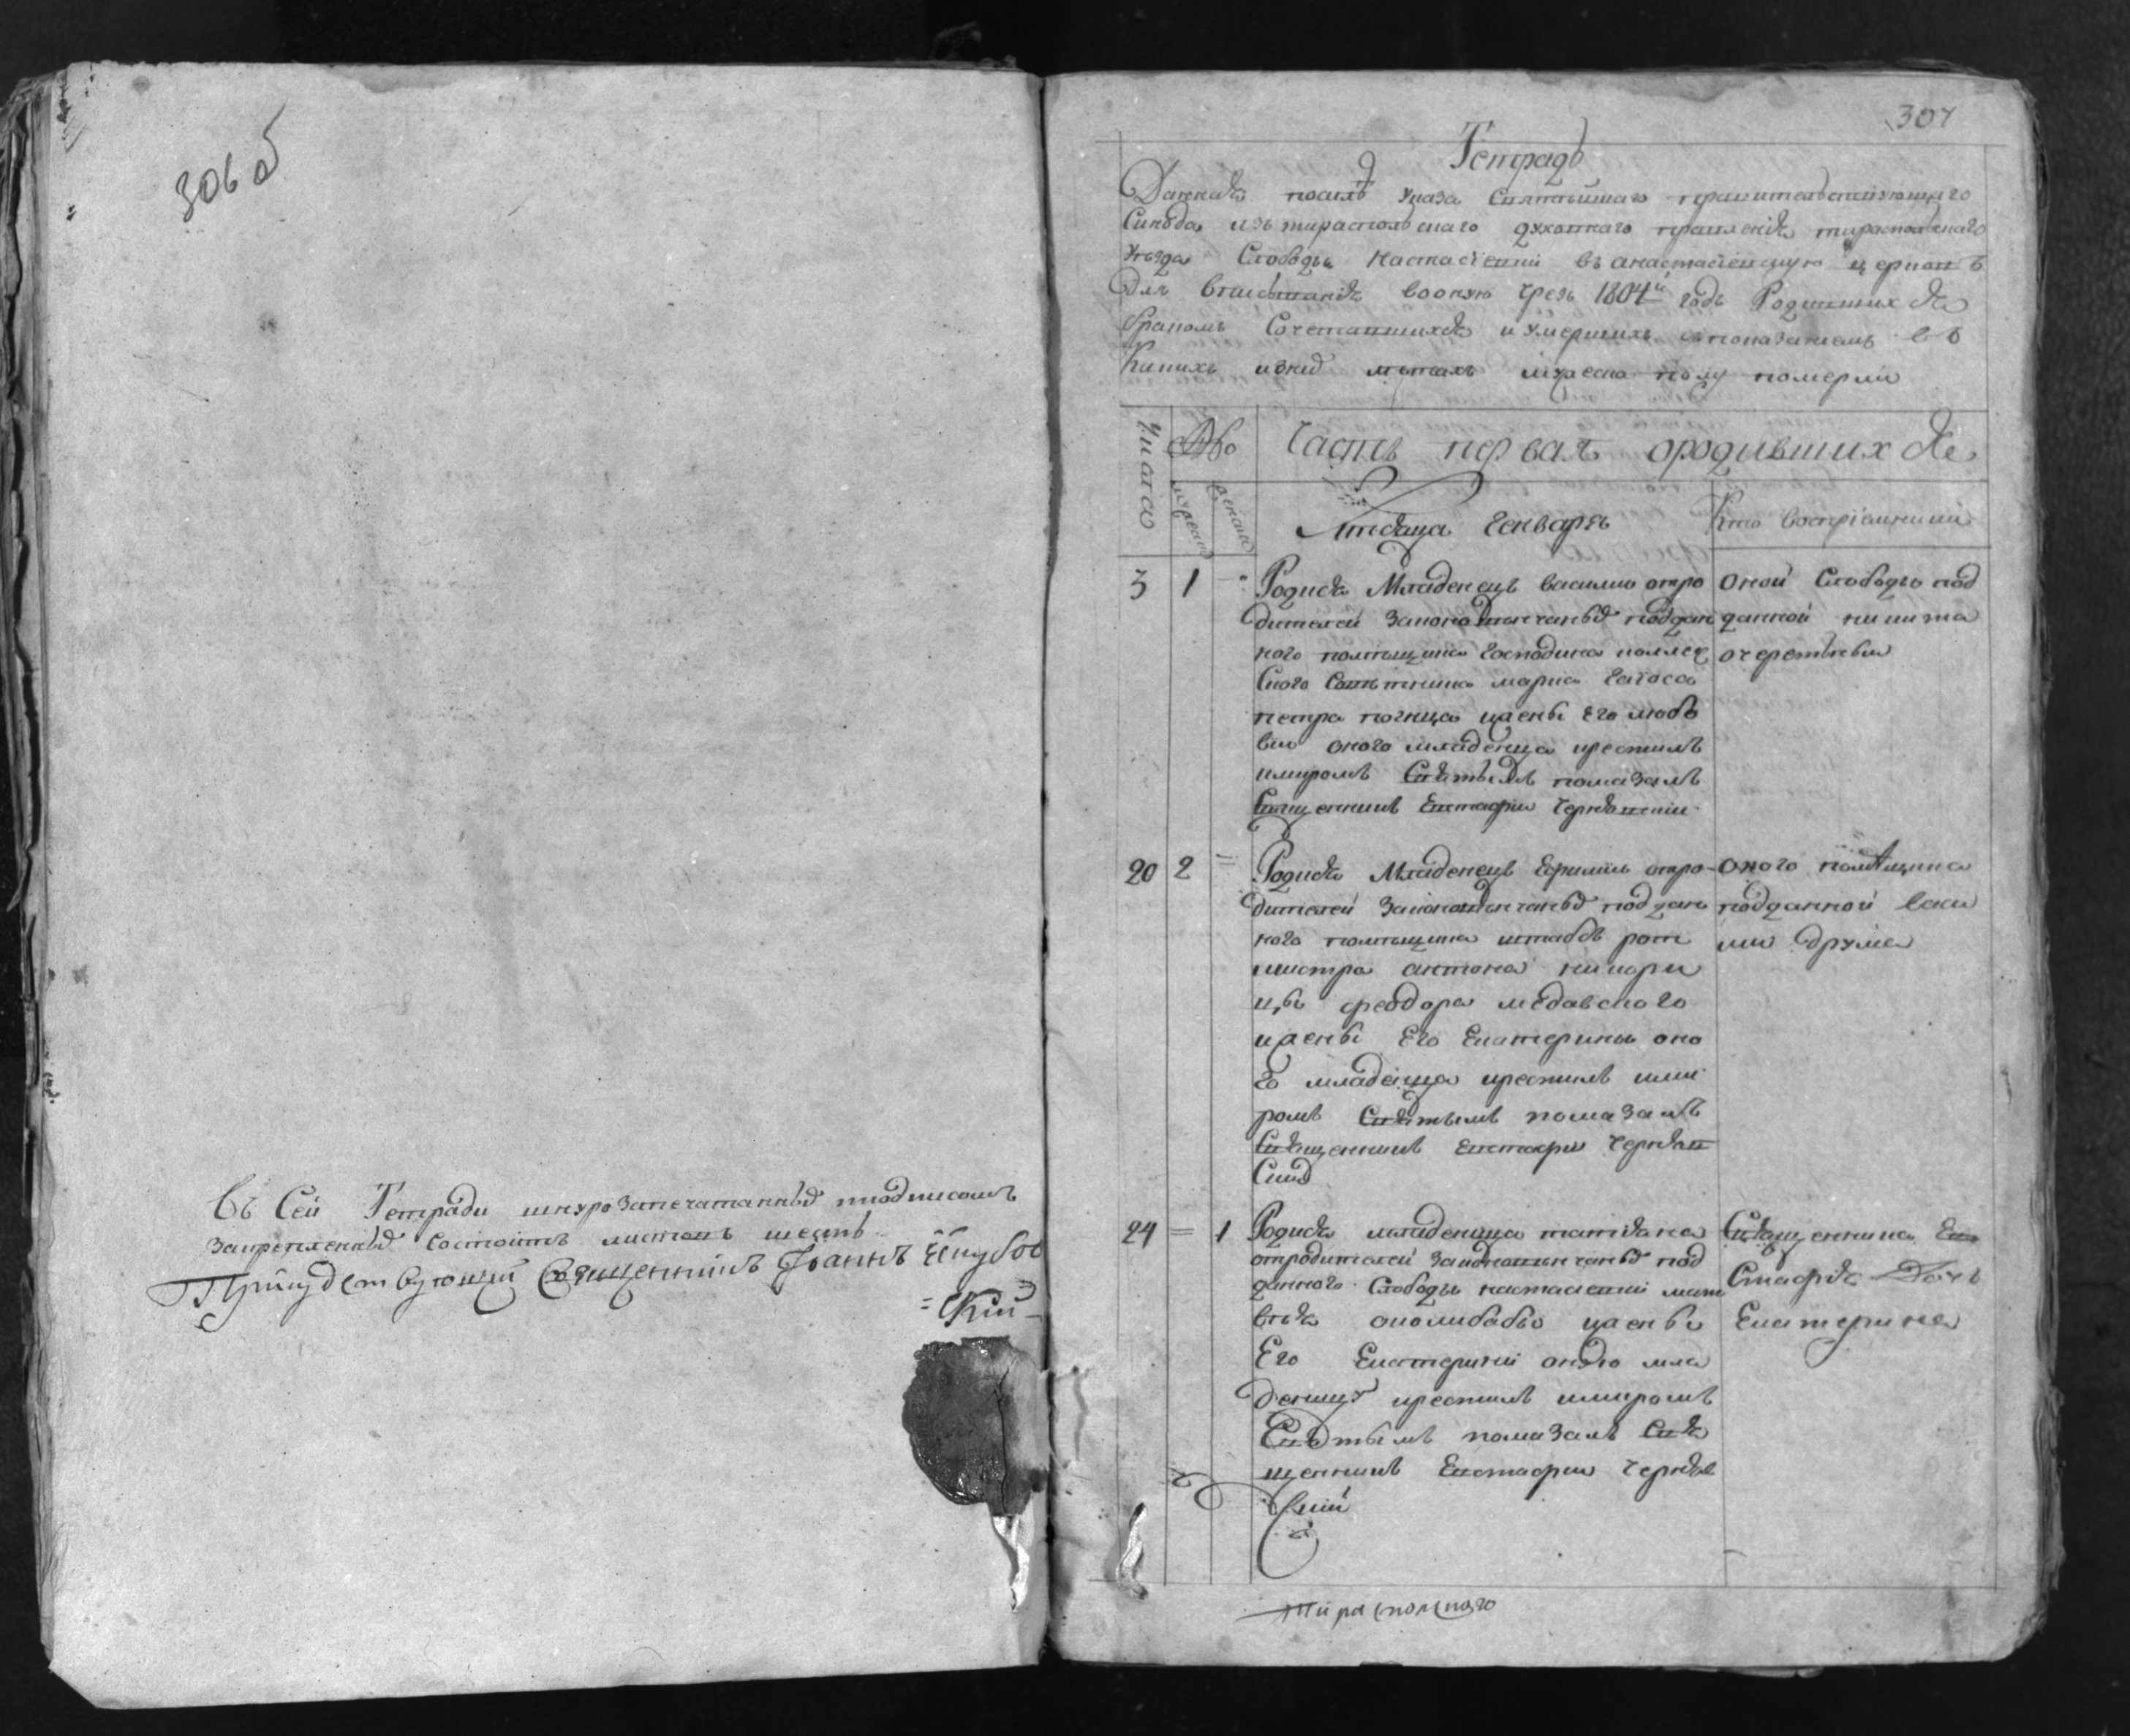 306 об
Въ Сей Тетради шнурозапечатанныя подписомъ
закрепленныя состоитъ листовъ шесть
Присудствующий Священникъ Іоаннъ
=скій-
307
Тетрадь
Данная Указа Святѣйшаго правителствующаго
Синода изъ тираспольскаго духовнаго правления тираспольскаго
уезда Слободы Настасіевки въ анастасіевскую церковъ
Для вписывания вооную чрезъ 1804й годъ Родившихся
бракомъ Сочетавшихся и умершихъ спознаніемъ въ
Какихъ летахъ померли
Число
Мужеска
Женска
Часть первая ородившихся
Мѣсяца Генваря
Кто восприемники
3 1 " Родися Младенецъ василий отро
дителей Законовѣнчаныя поддан
ного помѣщика Господина коллеж
ского Совѣтника марка Гагоса
петра жены Его любо
ви оного младенца крестилъ
имиромъ Святымъ помазалъ
Священникъ Евстафий Чернявский
Оной Слободы под
данной никита
очеретяный
20 2 = Родися Младенецъ Ефимий отро-
дителей Законовѣнчаныя поддан
ного помѣщика штабсъ рот
мистра антона
феодора
жены Его Екатерины оно
го младенца крестилъ ими
ромъ Святымъ помазалъ
Священникъ Евстафий Чернявъ
Ския
оного помѣщика
подданной васи
лий друма
24 = 1 Родися младеница татияна
отродителей Законовѣнчаныя под
данного Слободы настасіевки мат
вѣя жены
Его Екатерини оную мла
деницу крестилъ имиромъ
Святымъ помазалъ Свя
щенникъ Евстафий Черняв
ский
Священника Ев
стафия Дочь
Екатерина
Тираспольскаго